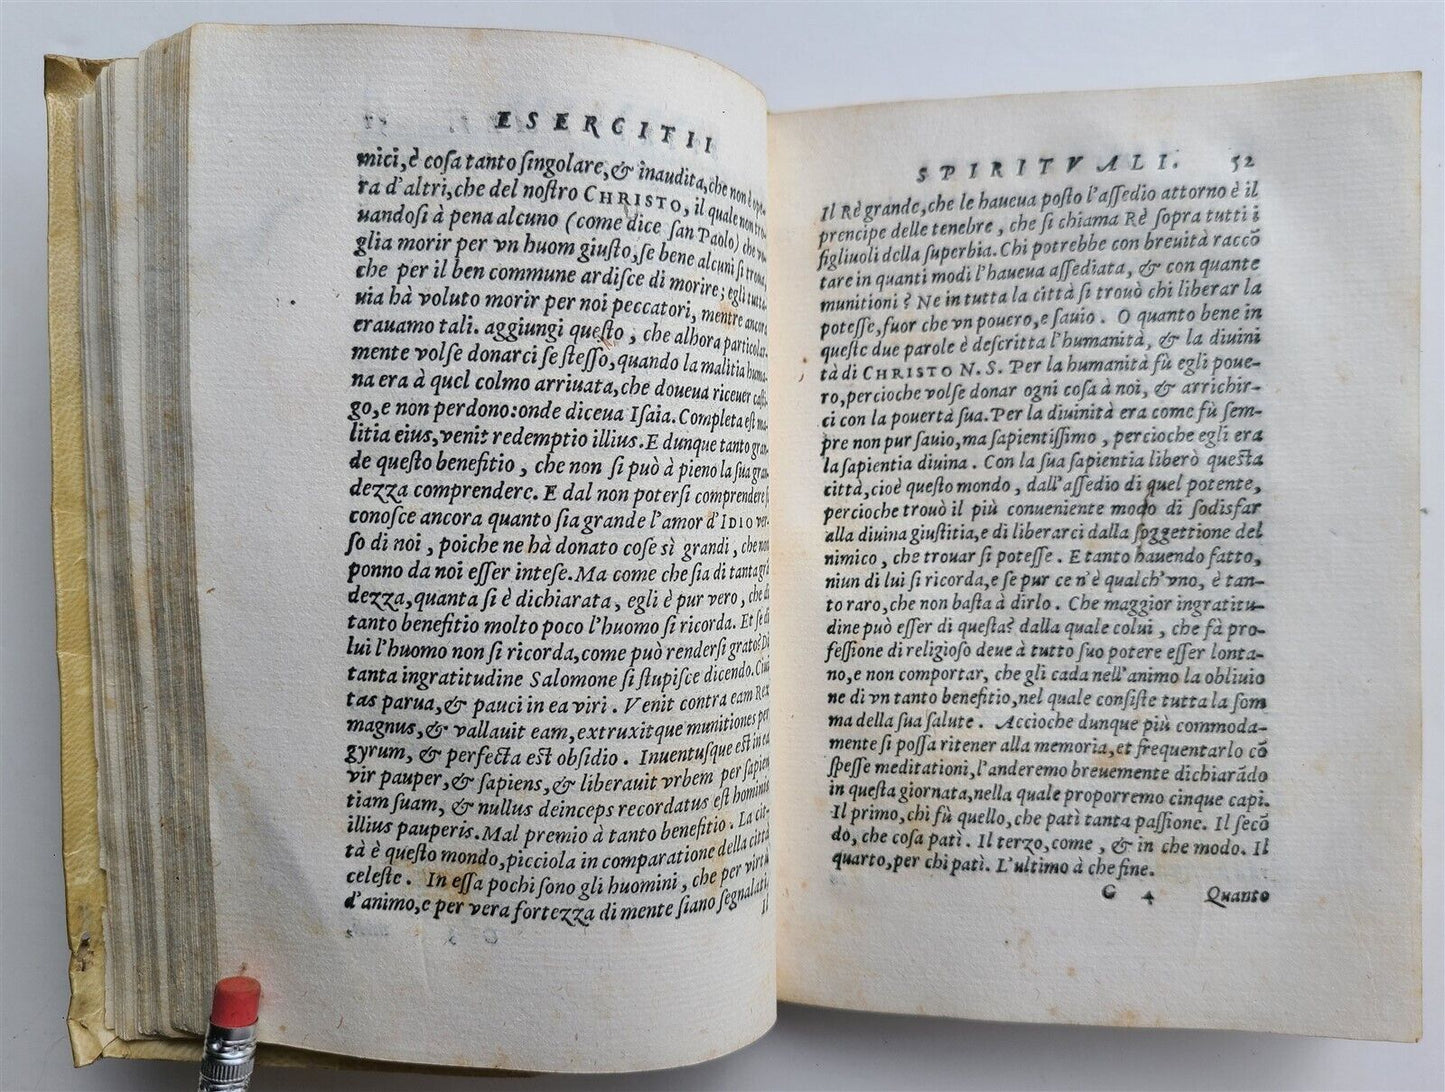 ESERCITII
mici, è coſa tanto ſingolare, & inaudita, che non è ope-
ra d'altri, che del noſtro CHRISTO, il quale non tro-
uandoſi à pena alcuno (come dice ſan Paolo) che vo-
glia morir per vn huom giuſto, ſe bene alcuni ſi troua,
che per il ben commune ardiſce di morire; egli tutta-
uia hà voluto morir per noi peccatori, mentre ancora
erauamo tali. aggiungi queſto, che alhora particolar-
mente volſe donarci ſe ſteſſo, quando la malitia huma-
na era à quel colmo arriuata, che doueua riceuer caſti-
go, e non perdono: onde diceua Iſaia. Completa eſt ma-
litia eius, venit redemptio illius. E dunque tanto gran-
de queſto benefitio, che non ſi può à pieno la ſua gran-
dezza comprendere. E dal non poterſi comprendere ſi
conoſce ancora quanto ſia grande l'amor d'IDIO ver-
ſo di noi, poiche ne hà donato coſe sì grandi, che non
ponno da noi eſſer inteſe. Ma come che ſia di tanta grā
dezza, quanta ſi è dichiarata, egli è pur vero, che di
tanto benefitio molto poco l'huomo ſi ricorda. Et ſe di
lui l'huomo non ſi ricorda, come può renderſi grato? Di
tanta ingratitudine Salomone ſi ſtupiſce dicendo. Ciui
tas parua, & pauci in ea viri. Venit contra eam Rex
magnus, & vallauit eam, extruxitque munitiones per
gyrum, & perfecta eſt obſidio. Inuentuſque eſt in ea
vir pauper, & ſapiens, & liberauit vrbem per ſapien
tiam ſuam, & nullus deinceps recordatus eſt hominis
illius pauperis. Mal premio à tanto benefitio. La cit-
tà è queſto mondo, picciola in comparatione della città
celeſte. In eſſa pochi ſono gli huomini, che per virtù
d'animo, e per vera fortezza di mente ſiano ſegnalati.
Il
SPIRITVALI. 52
Il Rè grande, che le haueua poſto l'aſſedio attorno è il
prencipe delle tenebre, che ſi chiama Rè ſopra tutti i
figliuoli della ſuperbia. Chi potrebbe con breuità raccō
tare in quanti modi l'haueua aſſediata, & con quante
munitioni? Ne in tutta la città ſi trouò chi liberar la
poteſſe, fuor che vn pouero, e ſauio. O quanto bene in
queſte due parole è deſcritta l'humanità, & la diuini
tà di CHRISTO N. S. Per la humanità fù egli poue-
ro, percioche volſe donar ogni coſa à noi, & arrichir-
ci con la pouertà ſua. Per la diuinità era come fù ſem-
pre non pur ſauio, ma ſapientiſſimo, percioche egli era
la ſapientia diuina. Con la ſua ſapientia liberò queſta
città, cioè queſto mondo, dall'aſſedio di quel potente,
percioche trouò il più conueniente modo di ſodisfar
alla diuina giuſtitia, e di liberarci dalla ſoggettione del
nimico, che trouar ſi poteſſe. E tanto hauendo fatto,
niun di lui ſi ricorda, e ſe pur ce n'è qualch'vno, è tan-
to raro, che non baſta à dirlo. Che maggior ingratitu-
dine può eſſer di queſta? dalla quale colui, che fà pro-
feſſione di religioſo deue à tutto ſuo potere eſſer lonta-
no, e non comportar, che gli cada nell'animo la obliuio
ne di vn tanto benefitio, nel quale conſiſte tutta la ſom
ma della ſua ſalute. Accioche dunque più commoda-
mente ſi poſſa ritener alla memoria, et frequentarlo cō
ſpeſſe meditationi, l'anderemo breuemente dichiarādo
in queſta giornata, nella quale proporremo cinque capi.
Il primo, chi fù quello, che patì tanta paſſione. Il ſecō
do, che coſa patì. Il terzo, come, & in che modo. Il
quarto, per chi patì. L'ultimo à che fine.
G 4 Quanto